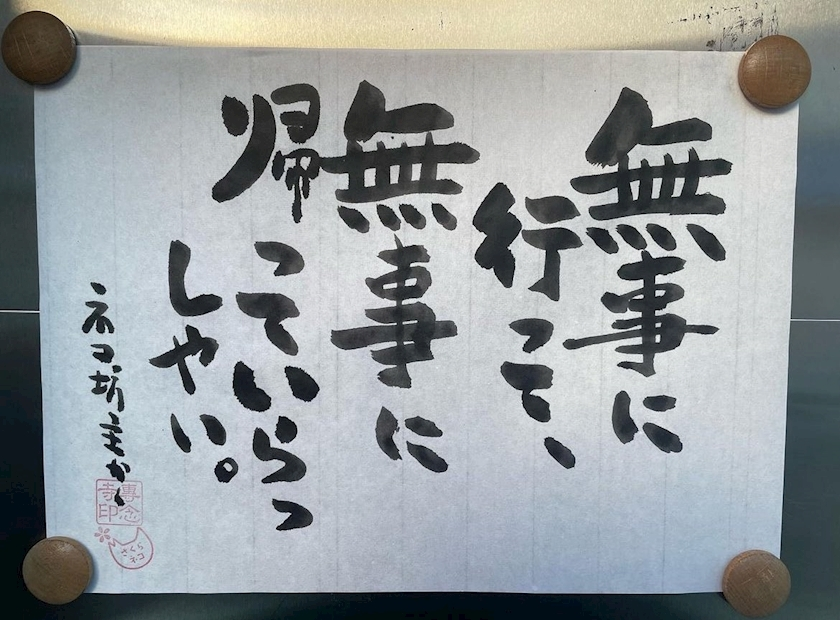 無事に
行って、
無事に
帰っていらっ
しゃい。
ネコ坊主かく
專念
寺印
さくら
ネコ